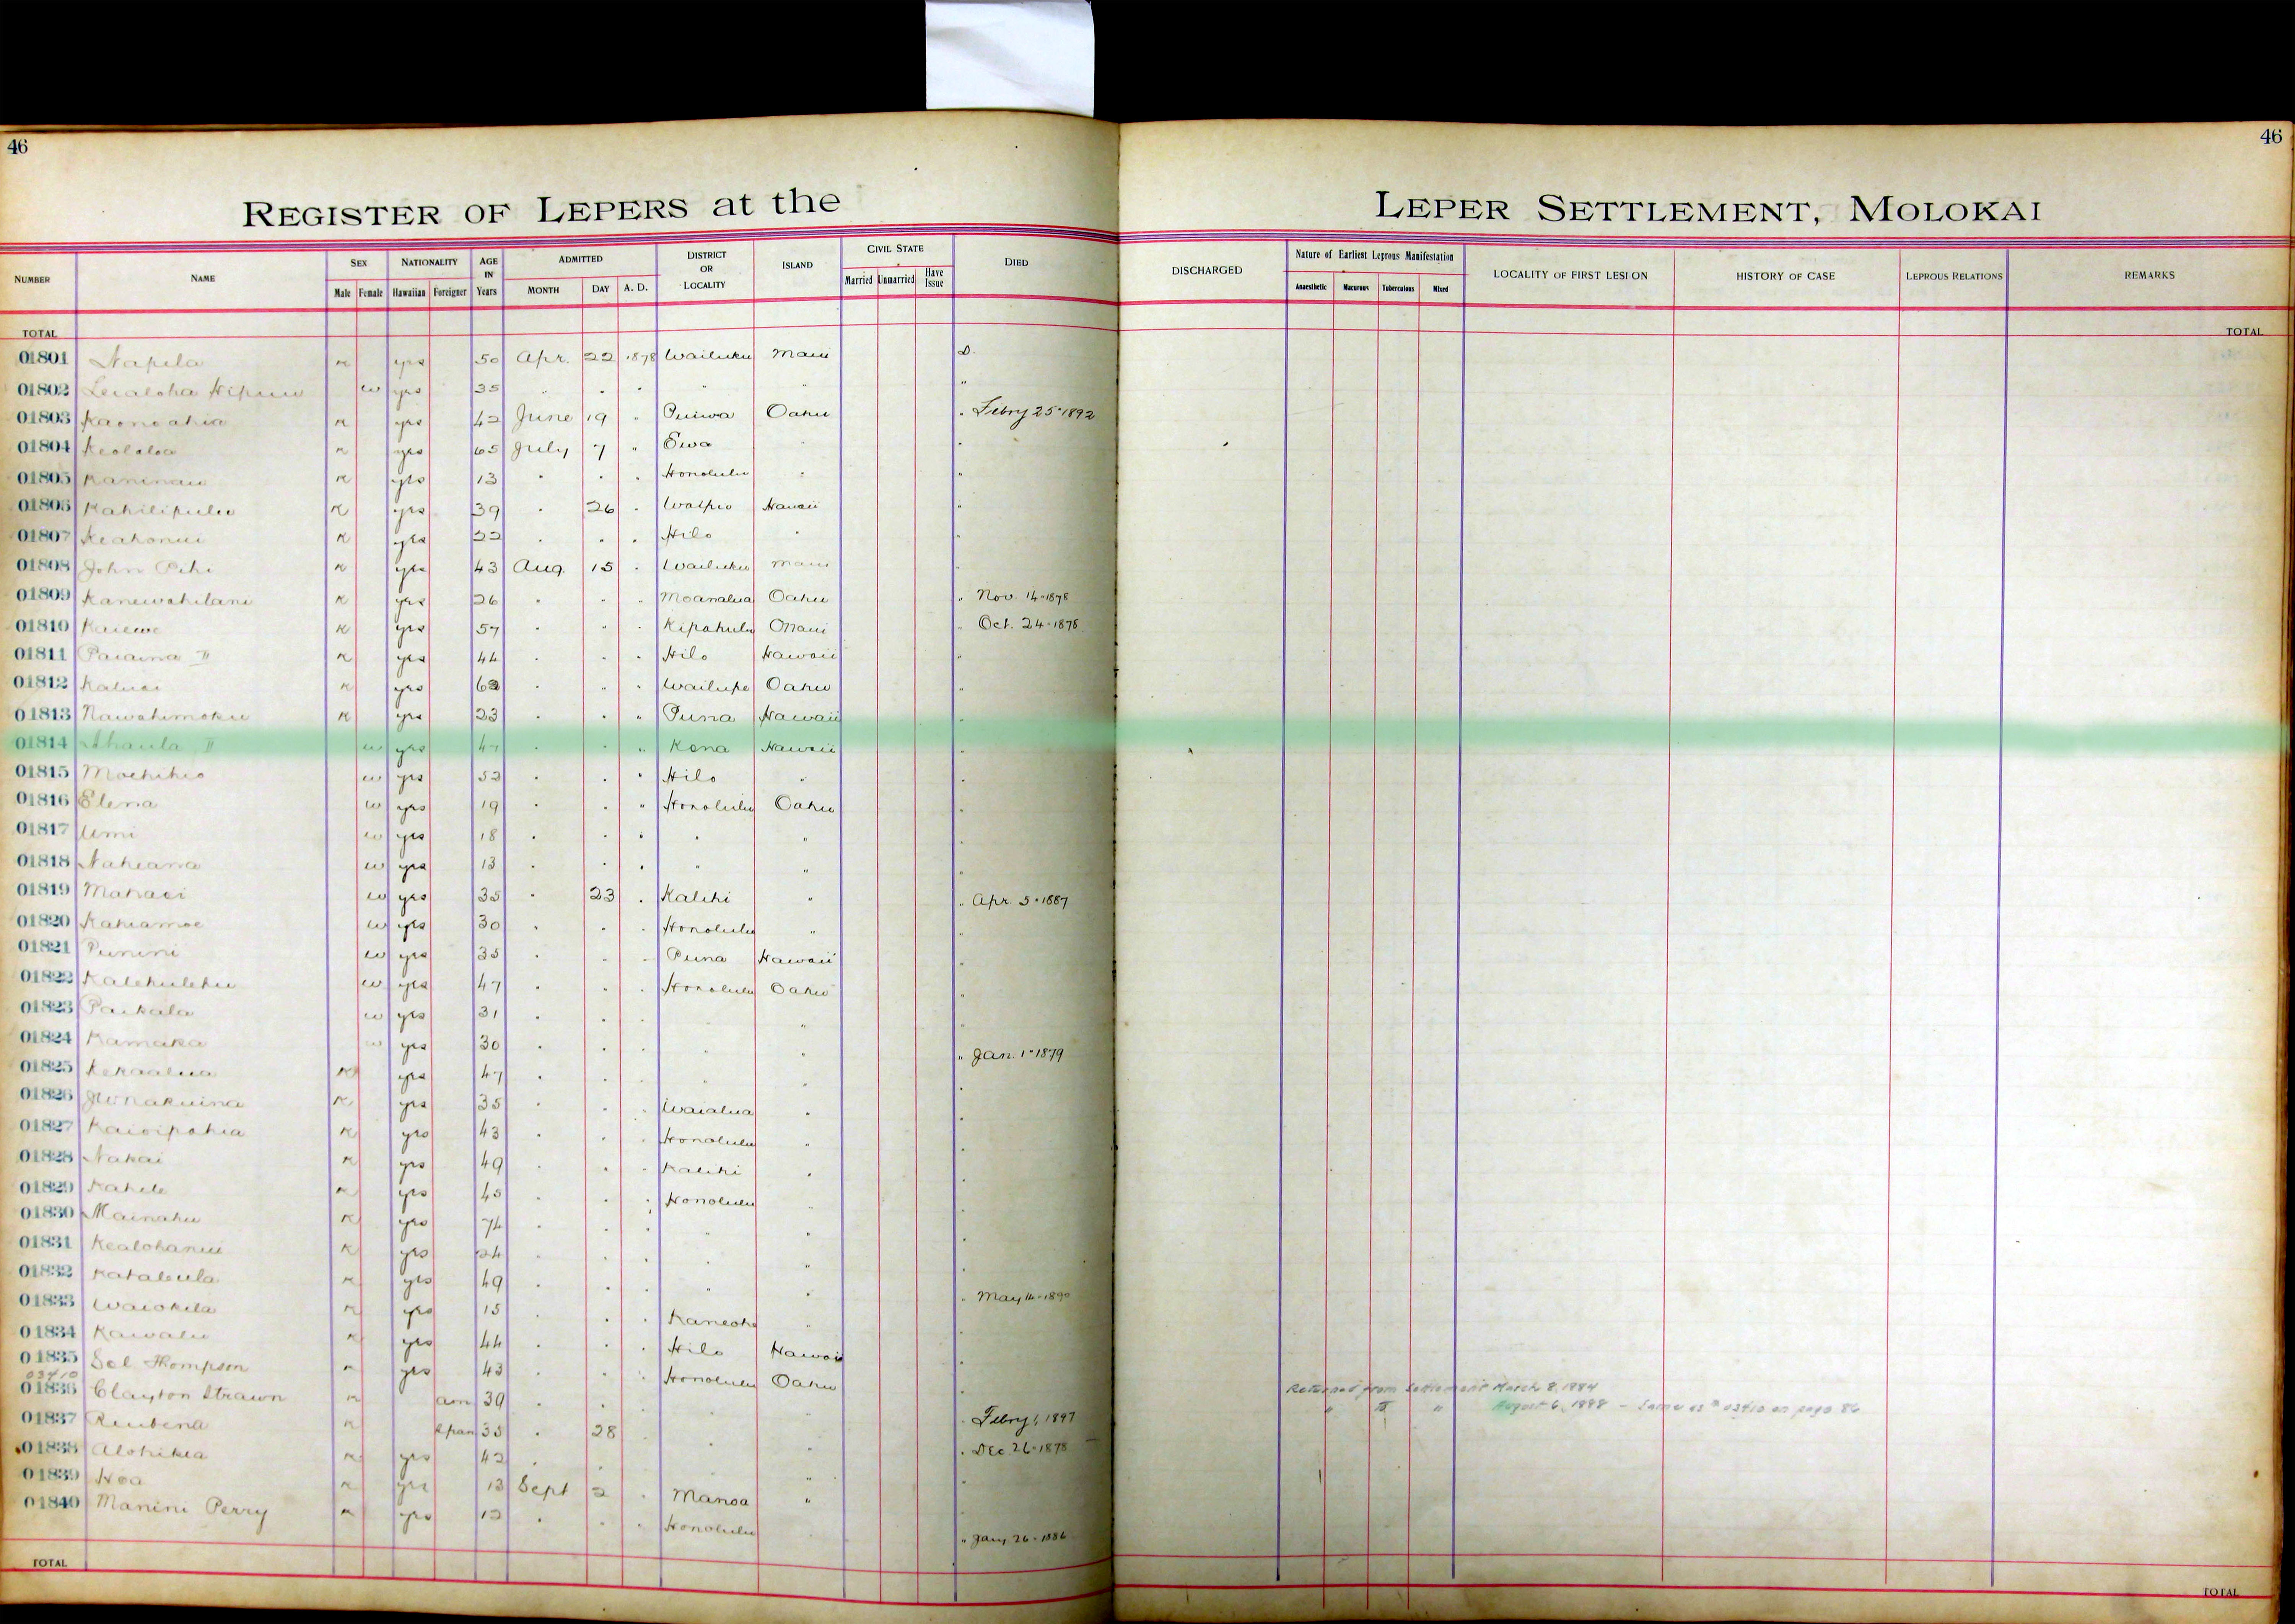 46
46
REGISTER OF LEPERS at the LEPER SETTLEMENT, MOLOKAI
NUMBER NAME SEX Male Female NATIONALITY Hawaiian Foreigner AGE IN Years ADMITTED MONTH DAY A. D. DISTRICT OR LOCALITY ISLAND CIVIL STATE Married Unmarried Have Issue DIED DISCHARGED Nature of Earliest Leprous Manifestation Anaesthetic Macurous Tuberculous Mixed LOCALITY OF FIRST LESION HISTORY OF CASE LEPROUS RELATIONS REMARKS
TOTAL TOTAL
01801 Napela m yes 50 Apr. 22 1878 Wailuku Maui D.
01802 Lualoha w yes 35 " " " " " "
01803 Kaonoahia m yes 42 June 19 " Puiwa Oahu " Febry 25-1892
01804 Keololoa m yes 65 July 7 " Ewa " "
01805 Kaninau m yes 13 " " " Honolulu " "
01806 Kahilipulu m yes 39 " 26 " Waipio Hawaii "
01807 Keahonui m yes 22 " " " Hilo " "
01808 John m yes 43 Aug. 15 " Wailuku Maui "
01809 Kanewahilani m yes 26 " " " Moanalua Oahu " Nov. 14-1878
01810 Kaiewe m yes 57 " " " Kipahulu Maui " Oct. 24-1878
01811 Paiaina II m yes 44 " " " Hilo Hawaii "
01812 Kaluai m yes 62 " " " Wailupe Oahu "
01813 Nawahimoku m yes 23 " " " Puna Hawaii "
01814 Ahaula II w yes 47 " " " Kona Hawaii "
01815 Moehiko w yes 52 " " " Hilo " "
01816 Elena w yes 19 " " " Honolulu Oahu "
01817 Umi w yes 18 " " " " " "
01818 Nahiana w yes 13 " " " " " "
01819 Mahaei w yes 35 " 23 " Kalihi " " Apr. 5-1887
01820 Kahiamoe w yes 30 " " " Honolulu " "
01821 Punini w yes 35 " " " Puna Hawaii "
01822 Kalehulehu w yes 47 " " " Honolulu Oahu "
01823 Paikala w yes 31 " " " " "
01824 Kamaka w yes 30 " " " " " " Jan. 1-1879
01825 Kekaalua m yes 47 " " " " "
01826 m yes 35 " " " Waialua " "
01827 Kaioipohia m yes 43 " " " Honolulu " "
01828 Nakai m yes 49 " " " Kalihi " "
01829 Kahele m yes 45 " " " Honolulu " "
01830 Mainahu m yes 74 " " " " "
01831 Kealohanui m yes 24 " " " " "
01832 Kahaleula m yes 49 " " " " " " May 14-1890
01833 Waiokila m yes 15 " " " Kaneohe " "
01834 Kawalu m yes 44 " " " Hilo Hawaii "
01835 Sol Thompson m yes 43 " " " Honolulu Oahu "
03410
01836 Clayton Strawn m am 39 " " " Febry 1, 1897 Returned from Settlement March 8, 1884
" II " August 6, 1888 - Same as # 03410 on page 86
01837 Reubena m Span 35 " 28 " " " Dec 26-1878
01838 Alohikea m yes 42 " " " "
01839 Hoa m yes 13 Sept 2 " Manoa "
01840 Manini Perry m yes 12 " " " Honolulu " Jany 26-1886
TOTAL TOTAL